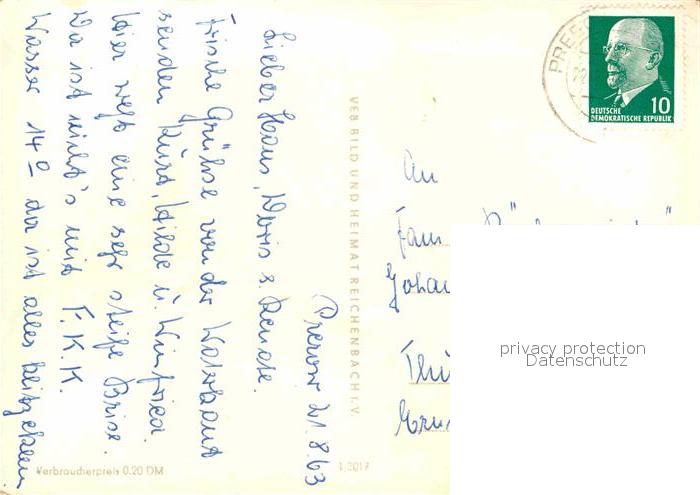 Prerow 21.8.63
Lieber Hans, Doris u. Renate.
Frische Grüsse von der Waterkant
senden Kurt, Hilde u. Winfried.
Hier weht eine sehr steife Brise.
Da ist nicht's mit F.K.K.
Wasser 14° da ist alles
VEB BILD UND HEIMAT REICHENBACH I.V.
Verbraucherpreis 0.20 DM
1.2017
DEUTSCHE
DEMOKRATISCHE REPUBLIK
10
An
Fam
privacy protection
Datenschutz